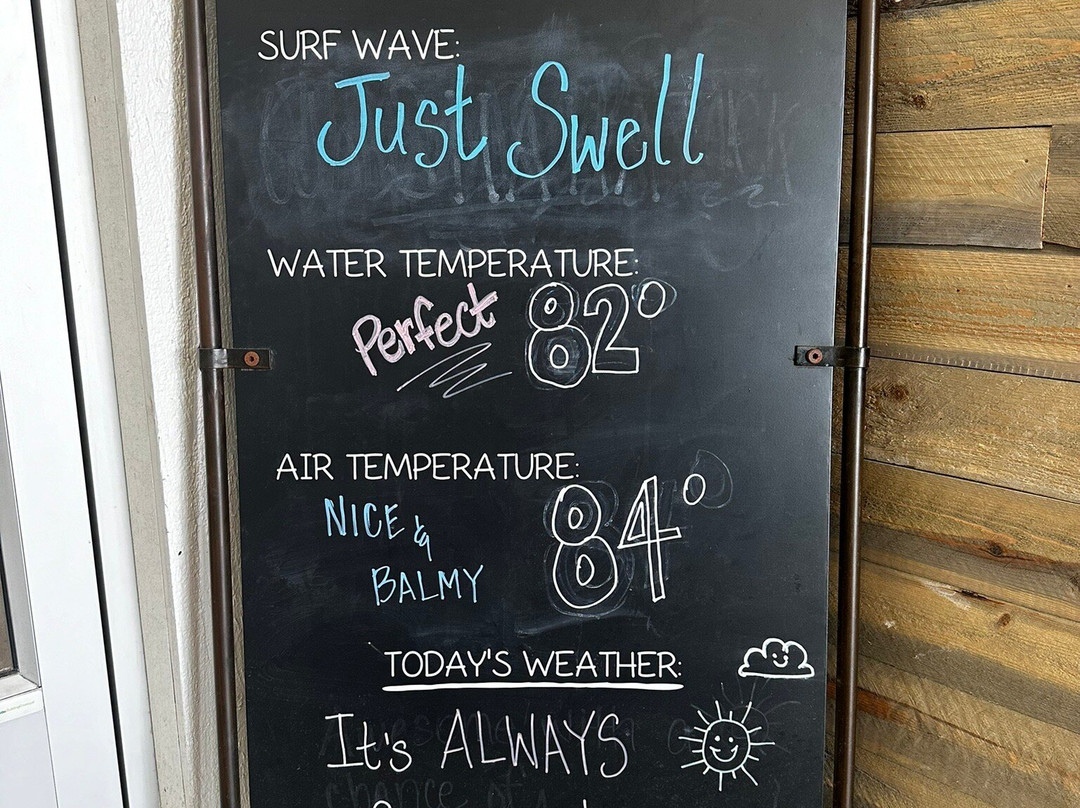 SURF WAVE:
Just Swell
WATER TEMPERATURE:
Perfect 82°
AIR TEMPERATURE:
NICE & 84°
BALMY
TODAY'S WEATHER:
It's ALWAYS